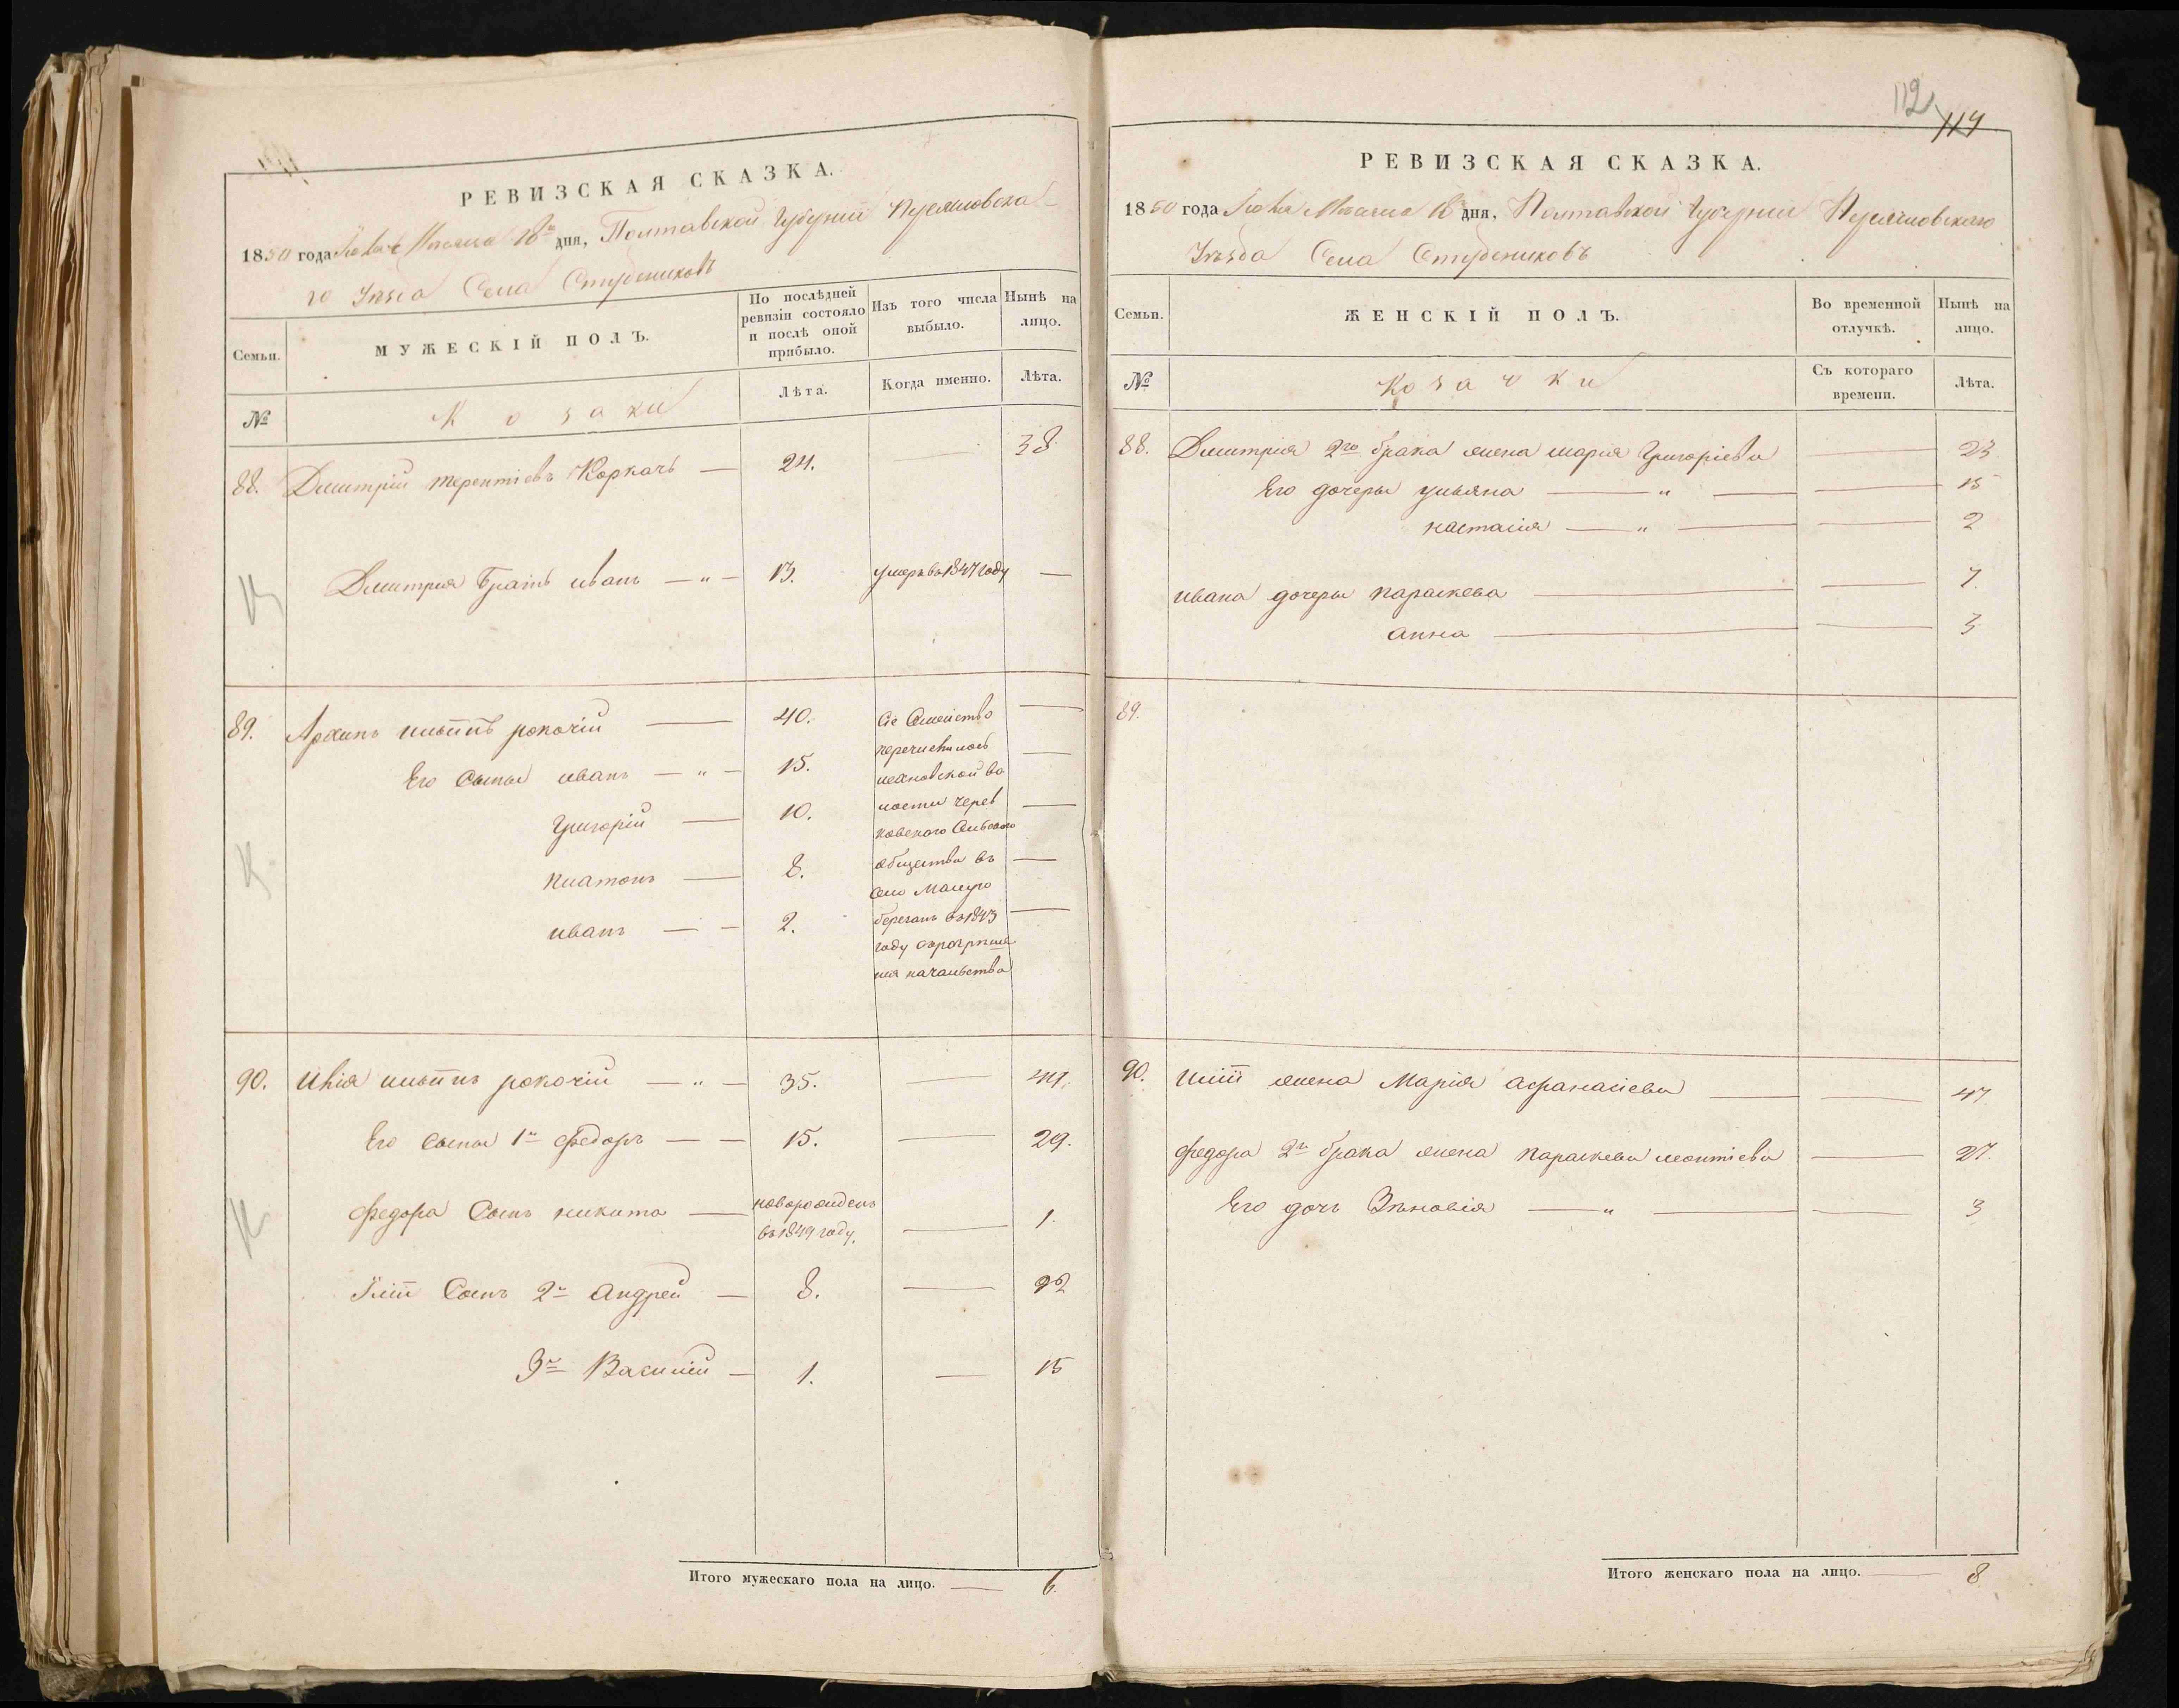 РЕВИЗСКАЯ СКАЗКА.
1850 года Месяца 18го дня, Полтавской Губернии Переясловска-
го Уезда Села Студениковъ
Семьи.
МУЖЕСКІЙ ПОЛЪ.
По послѣдней
ревизіи состояло
и послѣ оной
прибыло.
Изъ того числа
выбыло.
Нынѣ на
лицо.
№
Козаки
Лѣта.
Когда именно.
Лѣта.
88. Дмитрій терентіевъ Коркачъ — 24. — 38
Дмитрия Братъ иванъ — „ — 13. умеръ въ 1847 году —
89. Архипъ рокочій — 40. Сіе Семейство —
перечислилось
Его Сыны иванъ — „ — 15. —
во
Григорій — 10. лости черев —
ковского Сельского
платонъ — 8. общества въ —
село
иванъ — — 2. березань въ 1843 —
году
ния начальства
90. Илія рокочій — „ — 35. —
Его Сыны 1й федоръ — — 15. — 29.
Федора Сынъ никита — новорожденъ
въ 1849 году. — 1.
Сынъ 2й андрей — 8. — 22
3й Василій — 1. — 15
Итого мужескаго пола на лицо. — 6.
112
114
РЕВИЗСКАЯ СКАЗКА.
1850 года Месяца 18 дня, Полтавской Губернии Переясловского
Уезда Села Студениковъ
Семьи.
ЖЕНСКІЙ ПОЛЪ.
Во временной
отлучкѣ.
Нынѣ на
лицо.
№
Козачки
Съ котораго
времени.
Лѣта.
88. Дмитрія 2го брака жена мария Григоріева — 23
Его дочери ульяна — „ — — 15
настасия — „ — — 2
ивана дочери параскева — — 7.
анна — — 3
89.
90. иліи жена Марія афанасиева — — 47
федора 2го брака жена параскева леонтіева — 27.
Его дочь Зѣновія — „ — — 3
Итого женскаго пола на лицо. — 8